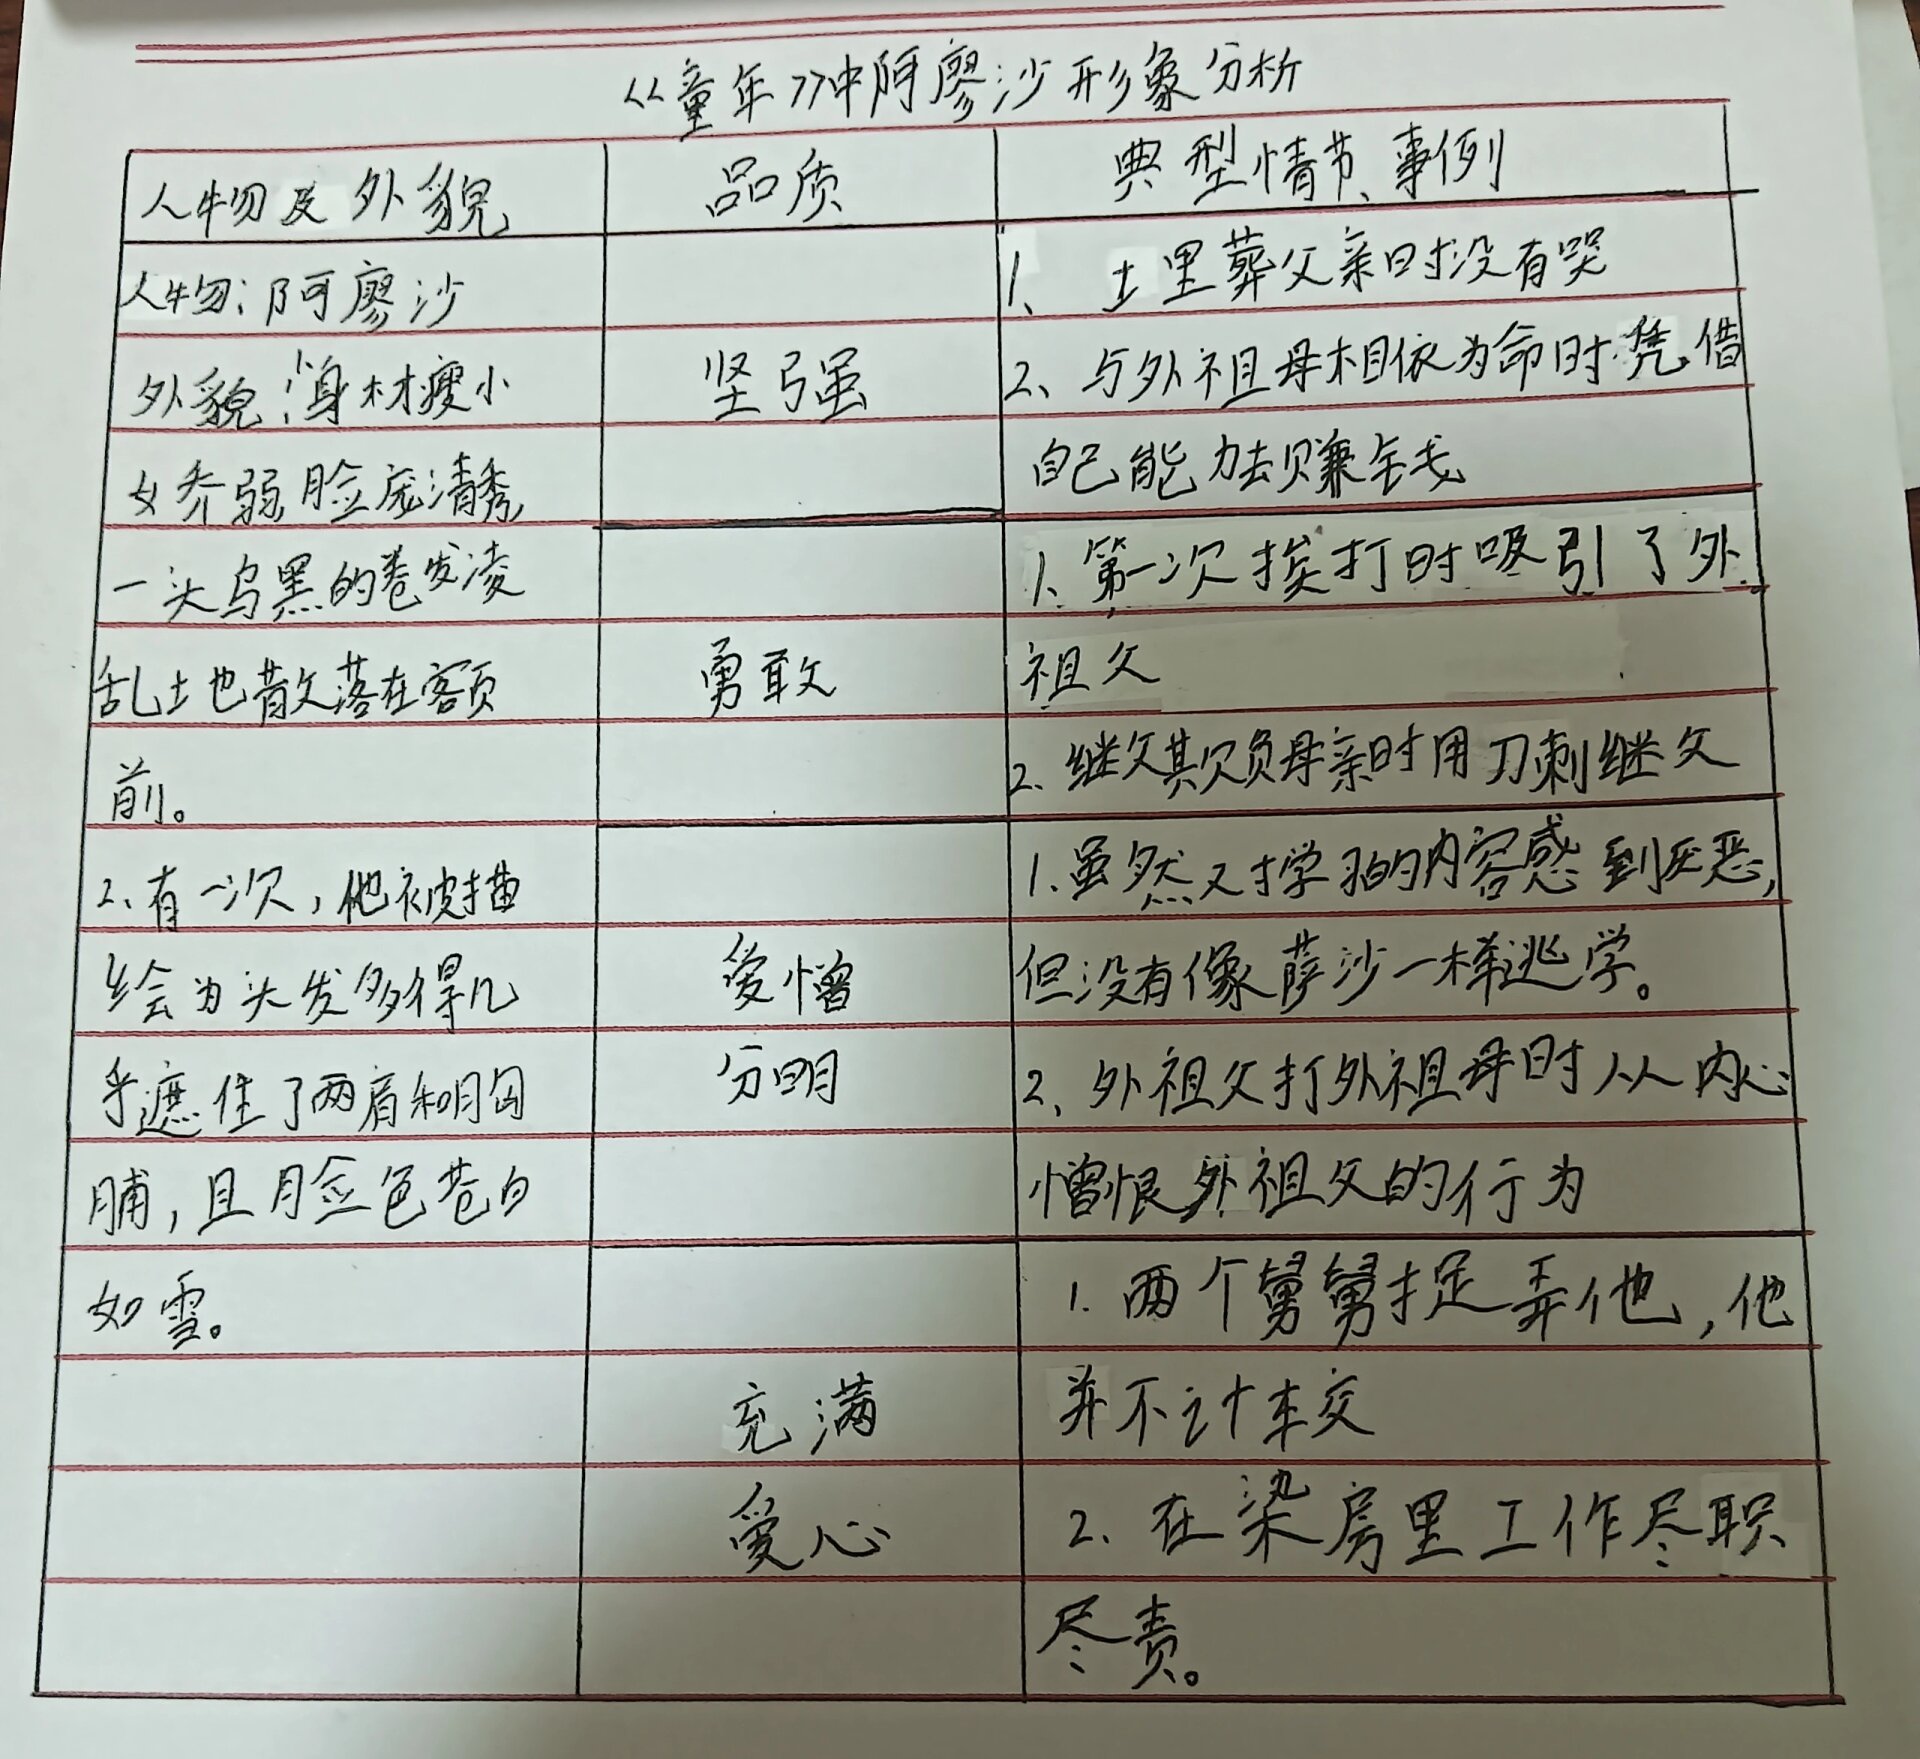 《童年》中阿廖沙形象分析
人物及外貌 品质 典型情节、事例
人物:阿廖沙 1、土里葬父亲时没有哭
外貌:1、身材瘦小 坚强 2、与外祖母相依为命时凭借
娇弱脸庞清秀 自己能力去赚钱
一头乌黑的卷发凌 1、第一次挨打时吸引了外
乱地散落在额 勇敢 祖父
前。 2、继父欺负母亲时用刀刺继父
2、有一次,他被描 1.虽然对学习的内容感到厌恶,
绘为头发多得几 爱憎 但没有像萨沙一样逃学。
乎遮住了两肩和胸 分明 2、外祖父打外祖母时从内心
脯,且脸色苍白 憎恨外祖父的行为
如雪。 1.两个舅舅捉弄他,他
充满 并不计较
爱心 2.在染房里工作尽职
尽责。